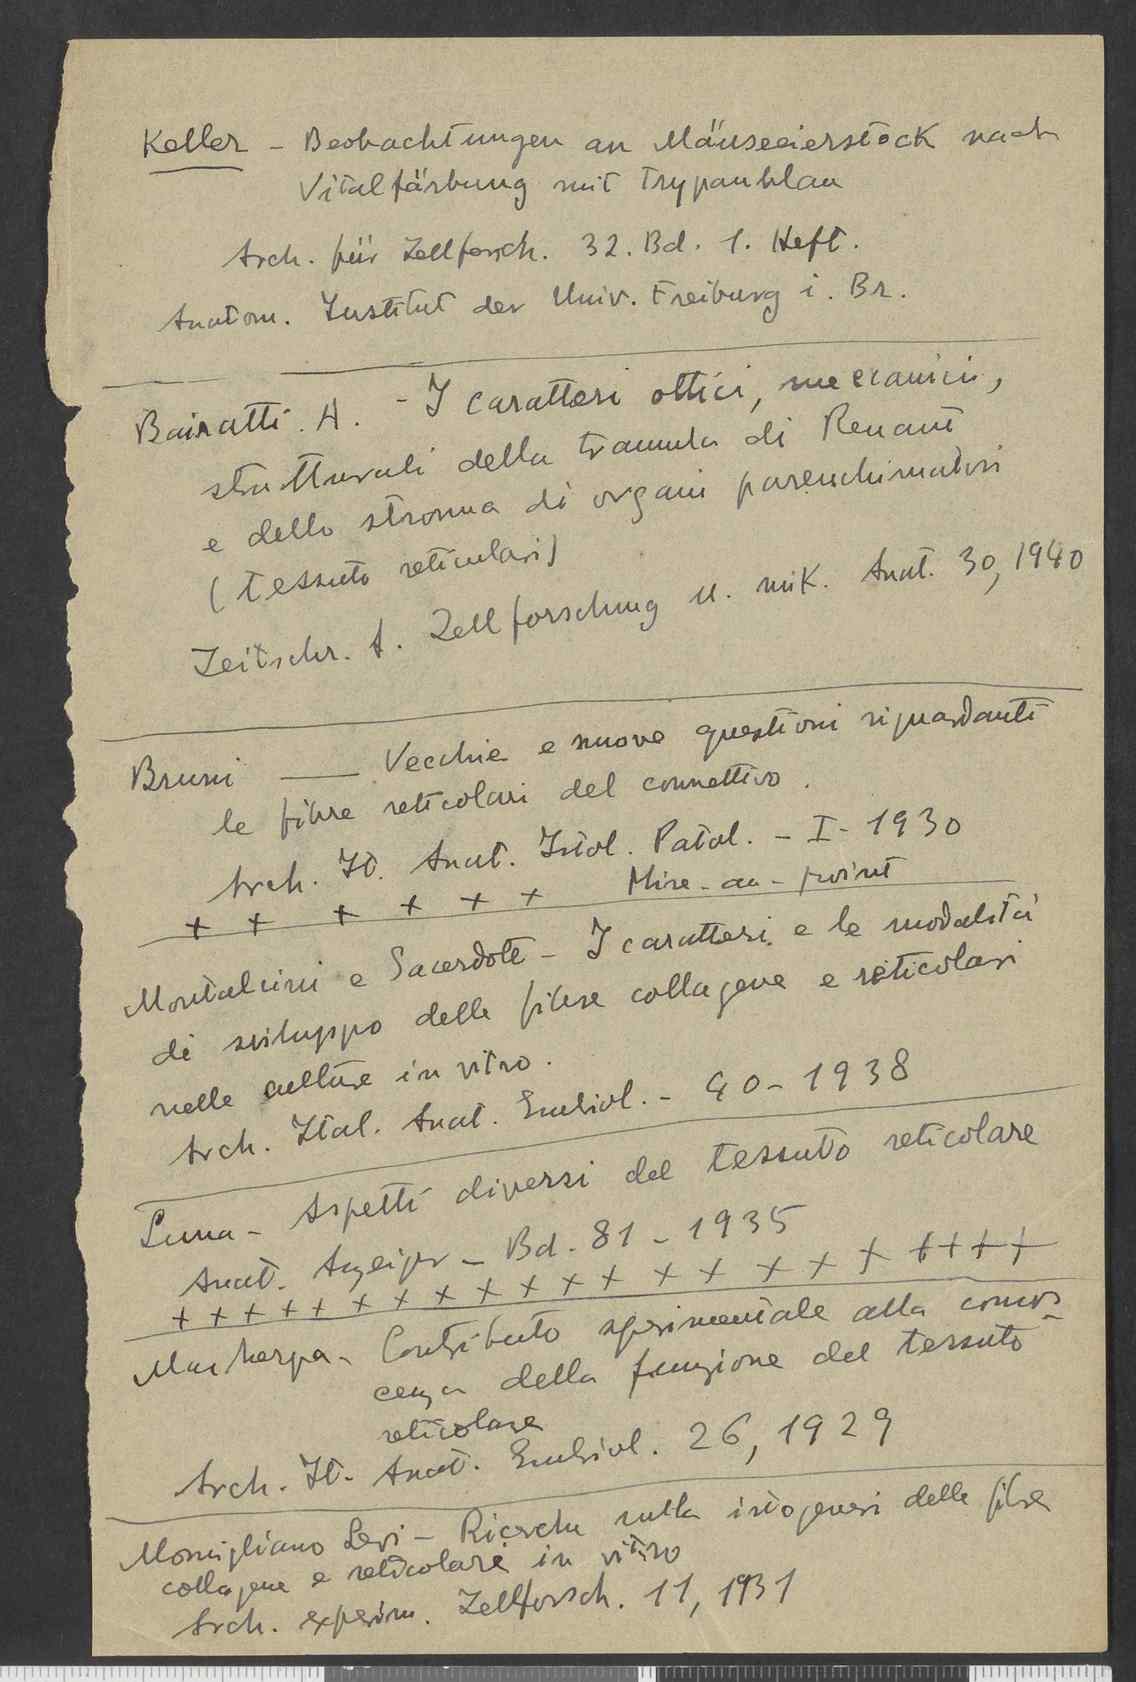 Keller - Beobachtungen an Mäuseeierstock nach
Vitalfärbung mit Trypanblau
Arch. für Zellforsch. 32. Bd. 1. Heft.
Anatom. Institut der Univ. Freiburg i. Br.
Bairatti. A. - I caratteri ottici, meccanici,
strutturali della tramula di Renaut
e dello stroma di organi parenchimatosi
(tessuto reticulari)
Zeitschr. f. Zellforschung u. mik. Anat. 30, 1940
Bruni — Vecchie e nuove questioni riguardanti
le fibre reticolari del connettivo.
Arch. It. Anat. Istol. Patol. - I - 1930
+ + + + + + Mise-au-point
Montalcini e Sacerdote - I caratteri e le modalità
di sviluppo delle fibre collagene e reticolari
nelle culture in vitro.
Arch. Ital. Anat. Embriol. - 40 - 1938
Luna - Aspetti diversi del tessuto reticolare
Anat. Anzeiger - Bd. 81 - 1935
+ + + + + + + + + + + + + + + + + + + +
- Contributo sperimentale alla conos
cenza della funzione del tessuto
reticolare
Arch. It. Anat. Embriol. 26, 1929
Momigliano Levi - Ricerche sulla istogenesi delle fibre
collagene e reticolari in vitro
Arch. experim. Zellforsch. 11, 1931